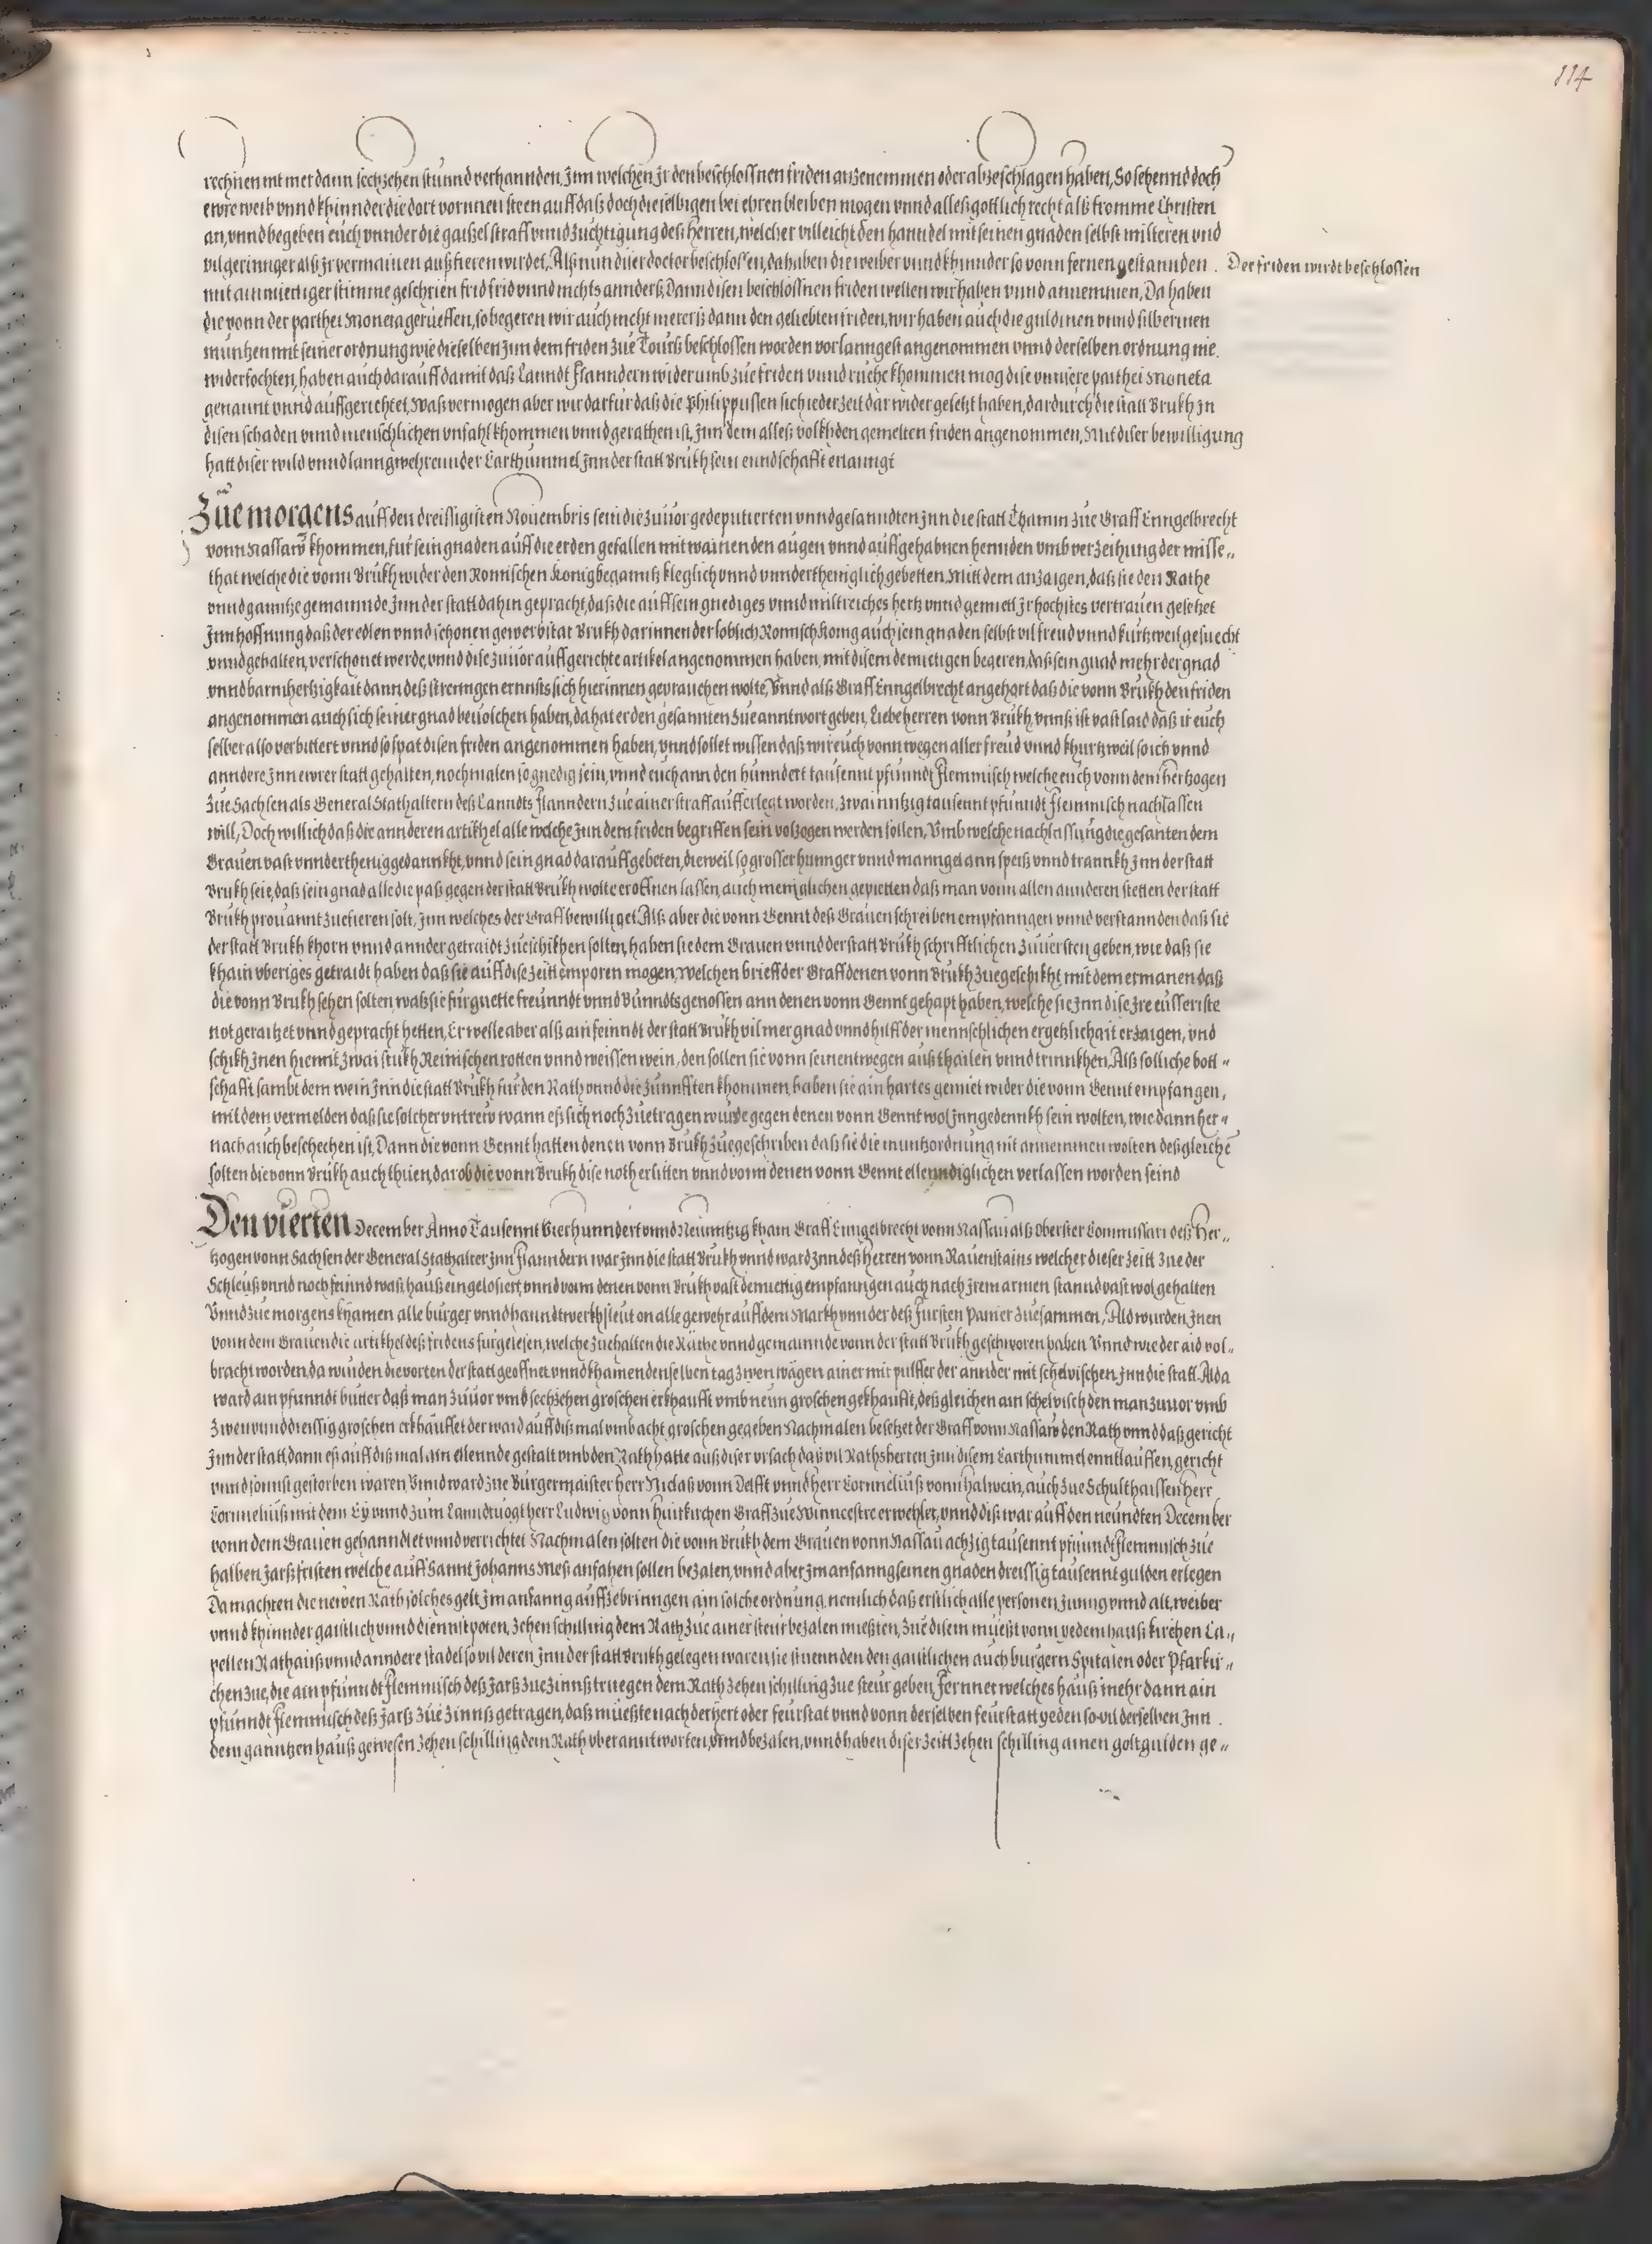 114
rechnen nit mer dann sechzehen stunnd verhannden, Jnn welchen Jr den beschlossnen friden anzenemmen oder abzeschlagen haben, So sehennd doch
ewre weib vnnd khinnder die dort vornnen steen auff daß doch dieselbigen bei ehren bleiben mogen vnnd alleß gottlich recht alß fromme Christen
an, vnnd begeben euch vnnder die gaißel straff vnnd zuchtigung deß Herren, welcher villeicht den hanndel mit seinen gnaden selbst miltern vnd
vil geringer alß Jr vermainen außfieren wirdet, Alß nun diser doctor beschlossen, da haben die weiber vnnd khinnder so vonn fernen gestannden .
Der friden wirdt beschlossen
mit ainmietiger stimme geschrien frid frid vnnd nichts annderß, Dann disen beschlossnen friden wellen wir haben vnnd annemmen, Da haben
die vonn der parthei Moneta gerueffen, so begeren wir auch nicht mererß dann den geliebten friden, wir haben auch die guldinen vnnd silberinen
müntzen mit seiner ordnung wie dieselben Jnn dem friden zue Tourß beschlossen worden vorlanngest angenommen vnnd derselben ordnung nie.
widerfochten, haben auch darauff damit daß Lanndt Flanndern widerumb zue friden vnnd ruehe khommen mog dise vnnsere parthei Moneta
genannt vnnd auffgerichtet, Waß vermogen aber wir darfür daß die Philippussen sich ieder zeit darwider gesetzt haben, dardurch die statt Brukh Jn
disen schaden vnnd menschlichen vnfahl khommen vnnd gerathen ist, Jnn dem alleß volkh den gemelten friden angenommen, Mit diser bewilligung
hatt diser wild vnnd lanngwehreunder Carthummel Jnn der statt Brukh sein enndschafft erlanngt
Züe morgens auff den dreissigisten Nouembris sein die zuuor gedeputierten vnnd gesanndten Jnn die statt Thamm zue Graff Enngelbrecht
vonn Nassaw khommen, für sein gnaden auff die erden gefallen mit wainenden augen vnnd auffgehabnen hennden vmb verzeihung der misse„
that welche die vonn Brukh wider den Romischen Konig beganntz kleglich vnnd vnndertheniglich gebetten, Mitt dem anzaigen, daß sie den Rathe
vnnd ganntze gemainnde Jnn der statt dahin gepracht, daß die auff sein gnediges vnnd miltreiches hertz vnnd gemiett Jr hochstes vertrauen gesetzet
Jnn hoffnung daß der edlen vnnd schonen gewerbstat Brukh darinnen der loblich Romisch Konig auch sein gnaden selbst vil freud vnnd kurtzweil gesuecht
vnnd gehalten, verschonet werde, vnnd dise zuuor auffgerichte artikel angenommen haben, mit disem demietigen begeren, daß sein gnad mehr der gnad
vnnd barmhertzigkait dann deß strenngen ernnsts sich hierinnen geprauchen wolte, Vnnd alß Graff Enngelbrecht angehort daß die vonn Brukh den friden
angenommen auch sich seiner gnad beuolchen haben, da hat er den gesannten zue anntwort geben, Liebe herren vonn Brukh, vnnß ist vast laid daß ir euch
selber also verbittert vnnd so spat disen friden angenommen haben, vnnd sollet wissen daß wir euch vonn wegen aller freud vnnd khurtzweil so ich vnnd
anndere Jnn ewrer statt gehalten, nochmalen so gnedig sein, vnnd euch ann den hunndert tausennt pfunndt flemmisch welche euch vonn dem hertzogen
zue Sachsen als General Stathaltern deß Lanndts Flanndern zue ainer straff aufferlegt worden, zwainntzig tausennt pfunndt flemmisch nachlassen
will, Doch will ich daß die annderen artikhel alle welche Jnn dem friden begriffen sein volzogen werden sollen, Vmb welche nachlassung die gesanten dem
Grauen vast vnndertheniggedannkht, vnnd sein gnad darauff gebeten, dieweil so grosser hunnger vnnd manngel ann speiß vnnd trannkh Jnn der statt
Brukh seie, daß sein gnad alle die paß gegen der statt Brukh wolte eroffnen lassen, auch meniglichen gepietten daß man vonn allen annderen stetten der statt
Brukh prouannt zuefieren solt, Jnn welches der Graff bewilliget. Alß aber die vonn Gennt deß Grauen schreiben empfanngen vnnd verstannden daß sie
der statt Brukh khorn vnnd annder getraidt zueschikhen solten, haben sie dem Grauen vnnd der statt Brukh schrifftlichen zuuersten geben, wie daß sie
khain vberiges getraidt haben daß sie auff dise zeitt emporen mogen, welchen brieff der Graff denen vonn Brukh zuegeschikht mit dem ermanen daß
die vonn Brukh sehen solten, waß sie für guette freunndt vnnd Bunndtsgenossen ann denen vonn Gennt gehapt haben, welche sie Jnn dise Jre eusseriste
not geraitzet vnnd gepracht hetten, Er welle aber alß ain feinndt der statt Brukh vil mer gnad vnnd hilff der mennschlichen ergetzlichait erzaigen, vnd
schikh Jnen hiemit zwai stukh Reinischen rotten vnnd weissen wein, den sollen sie vonn seinentwegen außthailen vnnd trinnkhen. Alß solliche bott„
schafft sambt dem wein Jnn die statt Brukh für den Rath vnnd die zünnfften khommen, haben sie ain hartes gemiet wider die vonn Gennt empfangen,
mit dem vermelden daß sie solcher vntrew wann eß sich noch zuetragen wurde gegen denen vonn Gennt wol Jnngedennkh sein wolten, wie dann her„
nach auch beschechen ist, Dann die vonn Gennt hatten denen vonn Brukh zuegeschriben daß sie die muntzordnung nit annemmen wolten deßgleichē
solten die vonn Brukh auch thuen, darob die vonn Brukh dise noth erlitten vnnd vonn denen vonn Gennt ellenndiglichen verlassen worden seind
Den vierten December Anno Tausennt Vierhunndert vnnd Neunntzig kham Graff Enngelbrecht vonn Nassau alß Oberster Commissari deß Her„
tzogen vonn Sachsen der General Stathalter Jnn Flanndern war Jnn die statt Brukh vnnd ward Jnn deß Herren vonn Rauenstains welcher dieser zeitt zue der
Schleuß vnnd noch feinnd waß hauß eingelosiert, vnnd vonn denen vonn Brukh vast demuettig empfanngen auch nach Jrem armen stannd vast wol gehalten
Vnnd zue morgens khamen alle burger vnnd hanndtwerkhsleut on alle gewehr auff dem Markh vnnder deß Fursten Panier zuesammen, Alda wurden Jnen
vonn dem Grauen die artikhel deß fridens furgelesen, welche zuehalten die Räthe vnnd gemainnde vonn der statt Brukh geschworen haben Vnnd wie der aid vol„
bracht worden, da wurden die porten der statt geoffnet vnnd khamen denselben tag zwen wägen ainer mit pulffer der annder mit schelvischen Jnn die statt. Alda
ward ain pfunndt butter daß man zuuor vmb sechzehen groschen erkhaufft vmb neun groschen gekhaufft, deßgleichen ain schelvisch den man zuuor vmb
zwenunnddreissig groschen erkhauffet der ward auff diß mal vmb acht groschen gegeben Nachmalen besetzet der Graff vonn Nassaw den Rath vnnd daß gericht
Jnn der statt, dann eß auff diß mal ain ellennde gestalt vmb den Rath hatte auß diser vrsach daß vil Rathsherren Jnn disem Carthummel enntlauffen, gericht
vnnd sonnst gestorben waren, Vnnd ward zue Burgermaister herr Niclaß vonn Delfft vnnd herr Cornneliuß vonn Halwein, auch zue Schulthaissen herr
Cornneliuß mit dem Ey vnnd zum Lanndtuogt herr Ludwig vonn Huitkirchen Graff zue Winncestre erwehlet, vnnd diß war auff den neundten December
vonn dem Grauen gehanndlet vnnd verrichtet Nachmalen solten die vonn Brukh dem Grauen vonn Nassau achzig tausennt pfunndt flemmisch zue
halben Jarßfristen welche auff Sannt Johanns Meß anfahen sollen bezalen, vnnd aber Jm anfanng seinen gnaden dreissig tausennt gulden erlegen
Da machten die newen Räth solches gelt Jm anfanng auffzebrinngen ain solche ordnung, nemlich daß erstlich alle personen Junng vnnd alt, weiber
vnnd khinnder gaistlich vnnd diennstpoten, zehen schilling dem Rath zue ainer steur bezalen mießten, zue disem mueßt vonn yedem hauß kirchen Ca„
pellen Rathauß vnnd anndere stadel so vil deren Jnn der statt Brukh gelegen waren, sie stuennden den gaistlichen auch burgern Spitalen oder Pfarkir„
chen zue, die ain pfunndt flemmisch deß Jarß zue zinnß truegen dem Rath zehen schilling zue steur geben, Fernner welches hauß mehr dann ain
pfunndt flemmisch deß Jarß zue zinnß getragen, daß mueßte nach der hert oder feurstat vnnd vonn derselben feurstatt yeden so vil derselben Jnn .
dem ganntzen hauß gewesen zehen schilling dem Rath vberanntworten, vnnd bezalen, vnnd haben diser zeitt zehen schilling ainen goltgulden ge„